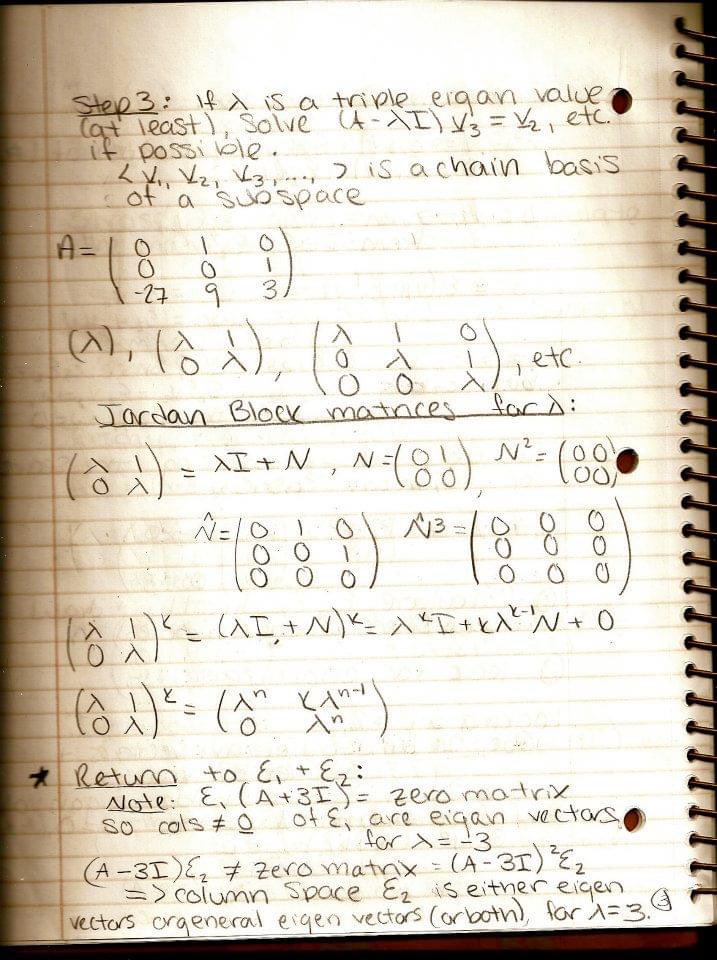 Step 3: If λ is a triple eigan value
(at least), Solve (A-λI) V₃ = V₂, etc.
if possible.
< V₁, V₂, V₃, ..., > is a chain basis
of a subspace
A = ( 0 1 0
0 0 1
-27 9 3 )
(λ), ( λ 1 / 0 λ ), ( λ 1 0 / 0 λ 1 / 0 0 λ ), etc.
Jordan Block matrices for λ:
( λ 1 / 0 λ ) = λI + N, N = ( 0 1 / 0 0 ), N² = ( 0 0 / 0 0 )
N̂ = ( 0 1 0 / 0 0 1 / 0 0 0 ) N̂3 = ( 0 0 0 / 0 0 0 / 0 0 0 )
( λ 1 / 0 λ )ᵏ = (λI + N)ᵏ = λᵏI + kλᵏ⁻¹N + 0
( λ 1 / 0 λ )ᵏ = ( λⁿ kλⁿ⁻¹ / 0 λⁿ )
* Return to Ɛ₁ + Ɛ₂:
Note: Ɛ₁ (A+3I) = zero matrix
so cols ≠ 0 of Ɛ₁ are eigan vectors
for λ = -3
(A-3I)Ɛ₂ ≠ zero matrix = (A-3I)²Ɛ₂
=> column Space Ɛ₂ is either eigen
vectors orgeneral eigen vectors (or both), for λ=3. ③